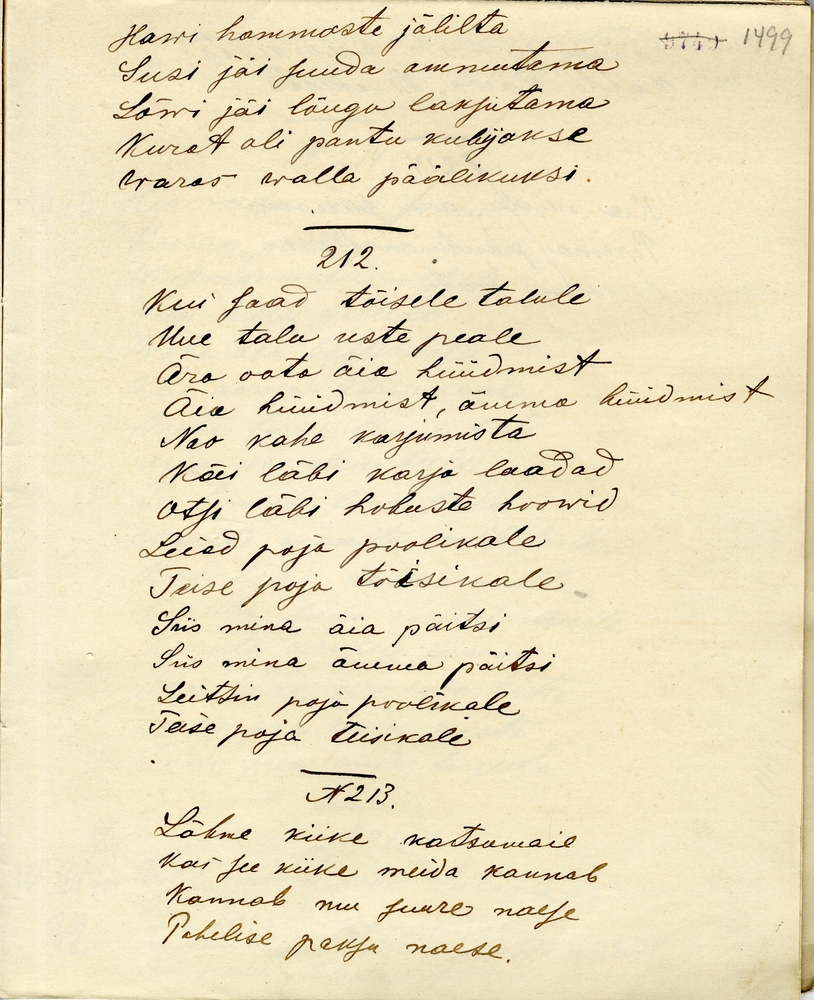 1499
Hawi hammaste jälilta
Susi jäi suuda ammutama
Lõwi jäi lõugu laksutama
Kurat oli pantu kubijakse
Waras walla päälikuksi.
212.
Kui saad tõisele talule
Uue talu uste peale
Ära oota äia hüüdmist
Äia hüüdmist, ämma hüüdmist
Nao kahe karjumista
Käi läbi karja laadad
Otsi läbi hobuste hoowid
Leiad poja poolikale
Teise poja tõisikale
Siis mina äia päitsi
Siis mina ämma päitsi
Leitsin poja poolikale
Teise poja teisikale
N 213.
Lähme kiike katsumaie
Kas see kiike meida kannab
Kannab mu suure naese
Pahelise paksu naese.